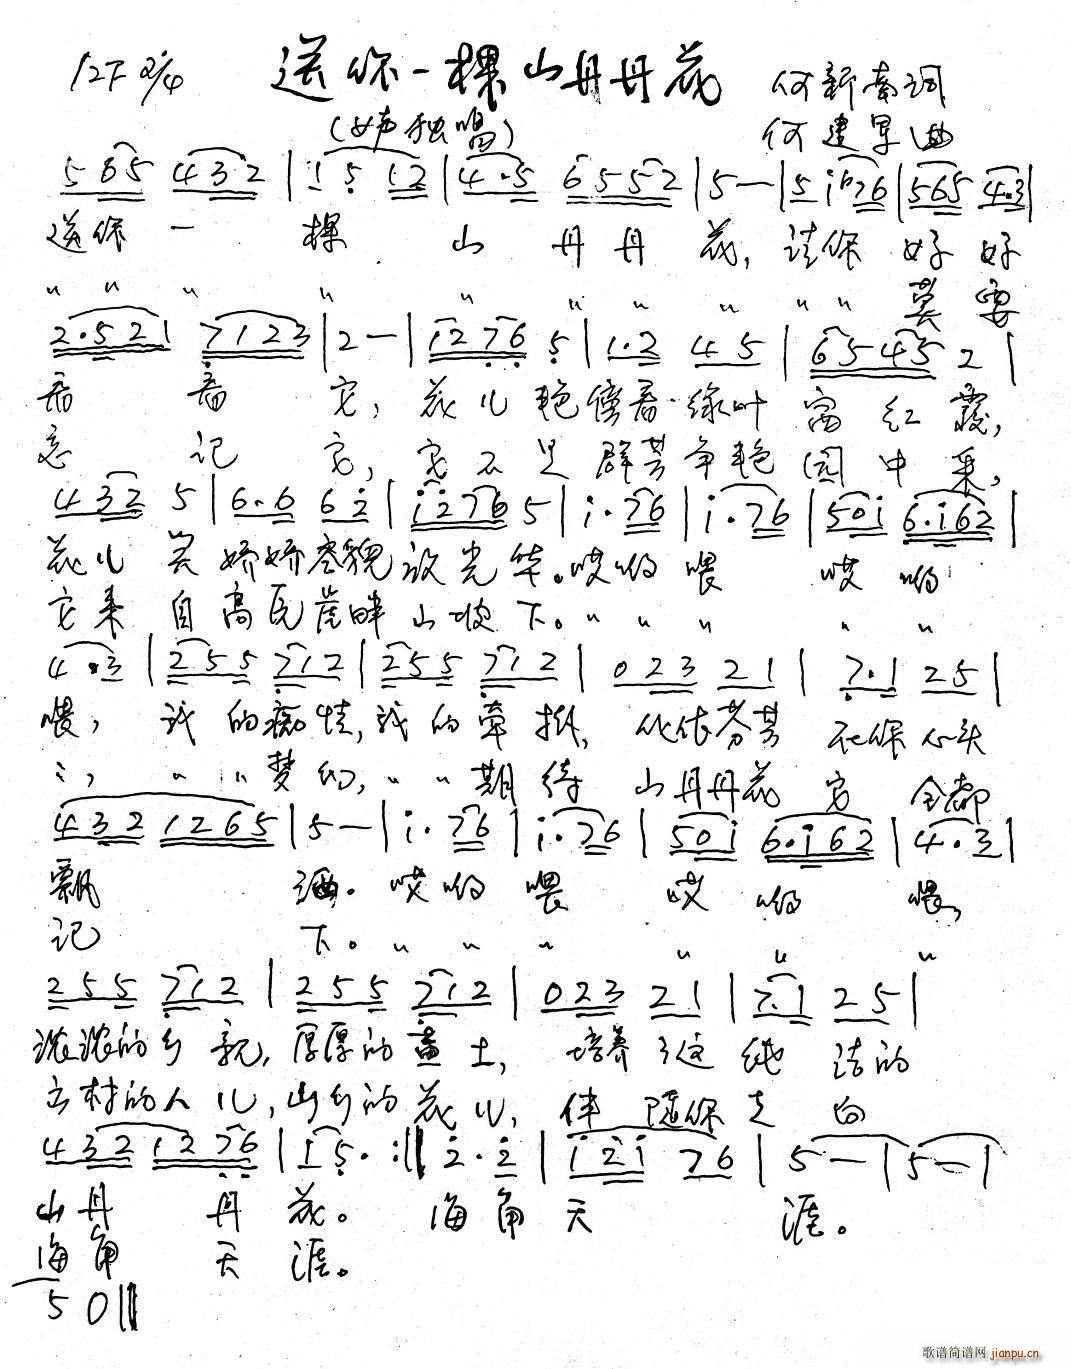 1=F 2/4 送你一棵山丹丹花 何新南词
(女声独唱) 何建军曲
5 6 5 4 3 2 | 1 5 1 2 | 4·5 6 5 5 2 | 5 — | 5 i 7 6 | 5 6 5 4·3 |
送你 一 棵 山 丹 丹 花, 请你 好 好
〃 〃 〃 〃 〃 〃 〃 〃 〃 〃 莫 要
2·5 2 1 7 1 2 3 | 2 — | 1 2 7 6 5 | 1·2 4 5 | 6 5 4 5 2 |
看 看 它, 花儿 艳傍着绿叶 富 红 霞,
忘 记 它, 它不是群芳争艳 园 中 采,
4 3 2 5 | 6·6 6 2 | i 2 7 6 5 | i·7 6 | i·7 6 | 5 0 i 6·i 6 2 |
花儿 娇娇容貌放光华。哎哟 喂 哎 哟
它来 自高瓦崖畔山坡下。〃 〃 〃 〃 〃
4·3 | 2 5 5 7 1 2 | 2 5 5 7 1 2 | 0 2 3 2 1 | 7·1 2 5 |
喂, 我 的痴情,我的牵挂, 化作芬芳 在你心头
〃, 〃 〃梦幻,〃 〃期待 山丹丹花 它 全都
4 3 2 1 2 6 5 | 5 — | i·7 6 | i·7 6 | 5 0 i 6·i 6 2 | 4·3 |
飘 洒。哎哟 喂 哎 哟 喂,
记 下。〃 〃 〃 〃 〃 〃
2 5 5 7 1 2 | 2 5 5 7 1 2 | 0 2 3 2 1 | 7·1 2 5 |
浓浓的乡 亲,厚厚的黄 土, 培养 这 纯 洁的
山村的人 儿,山乡的花儿, 伴 随你走 向
4 3 2 1 2 7 6 | 1 5· :‖ 2·2 | i 2 i 7 6 | 5 — | 5 — |
山丹 丹 花。 海角 天 涯。
海角 天 涯。
5 0 ‖
歌谱简谱网 jianpu.cn